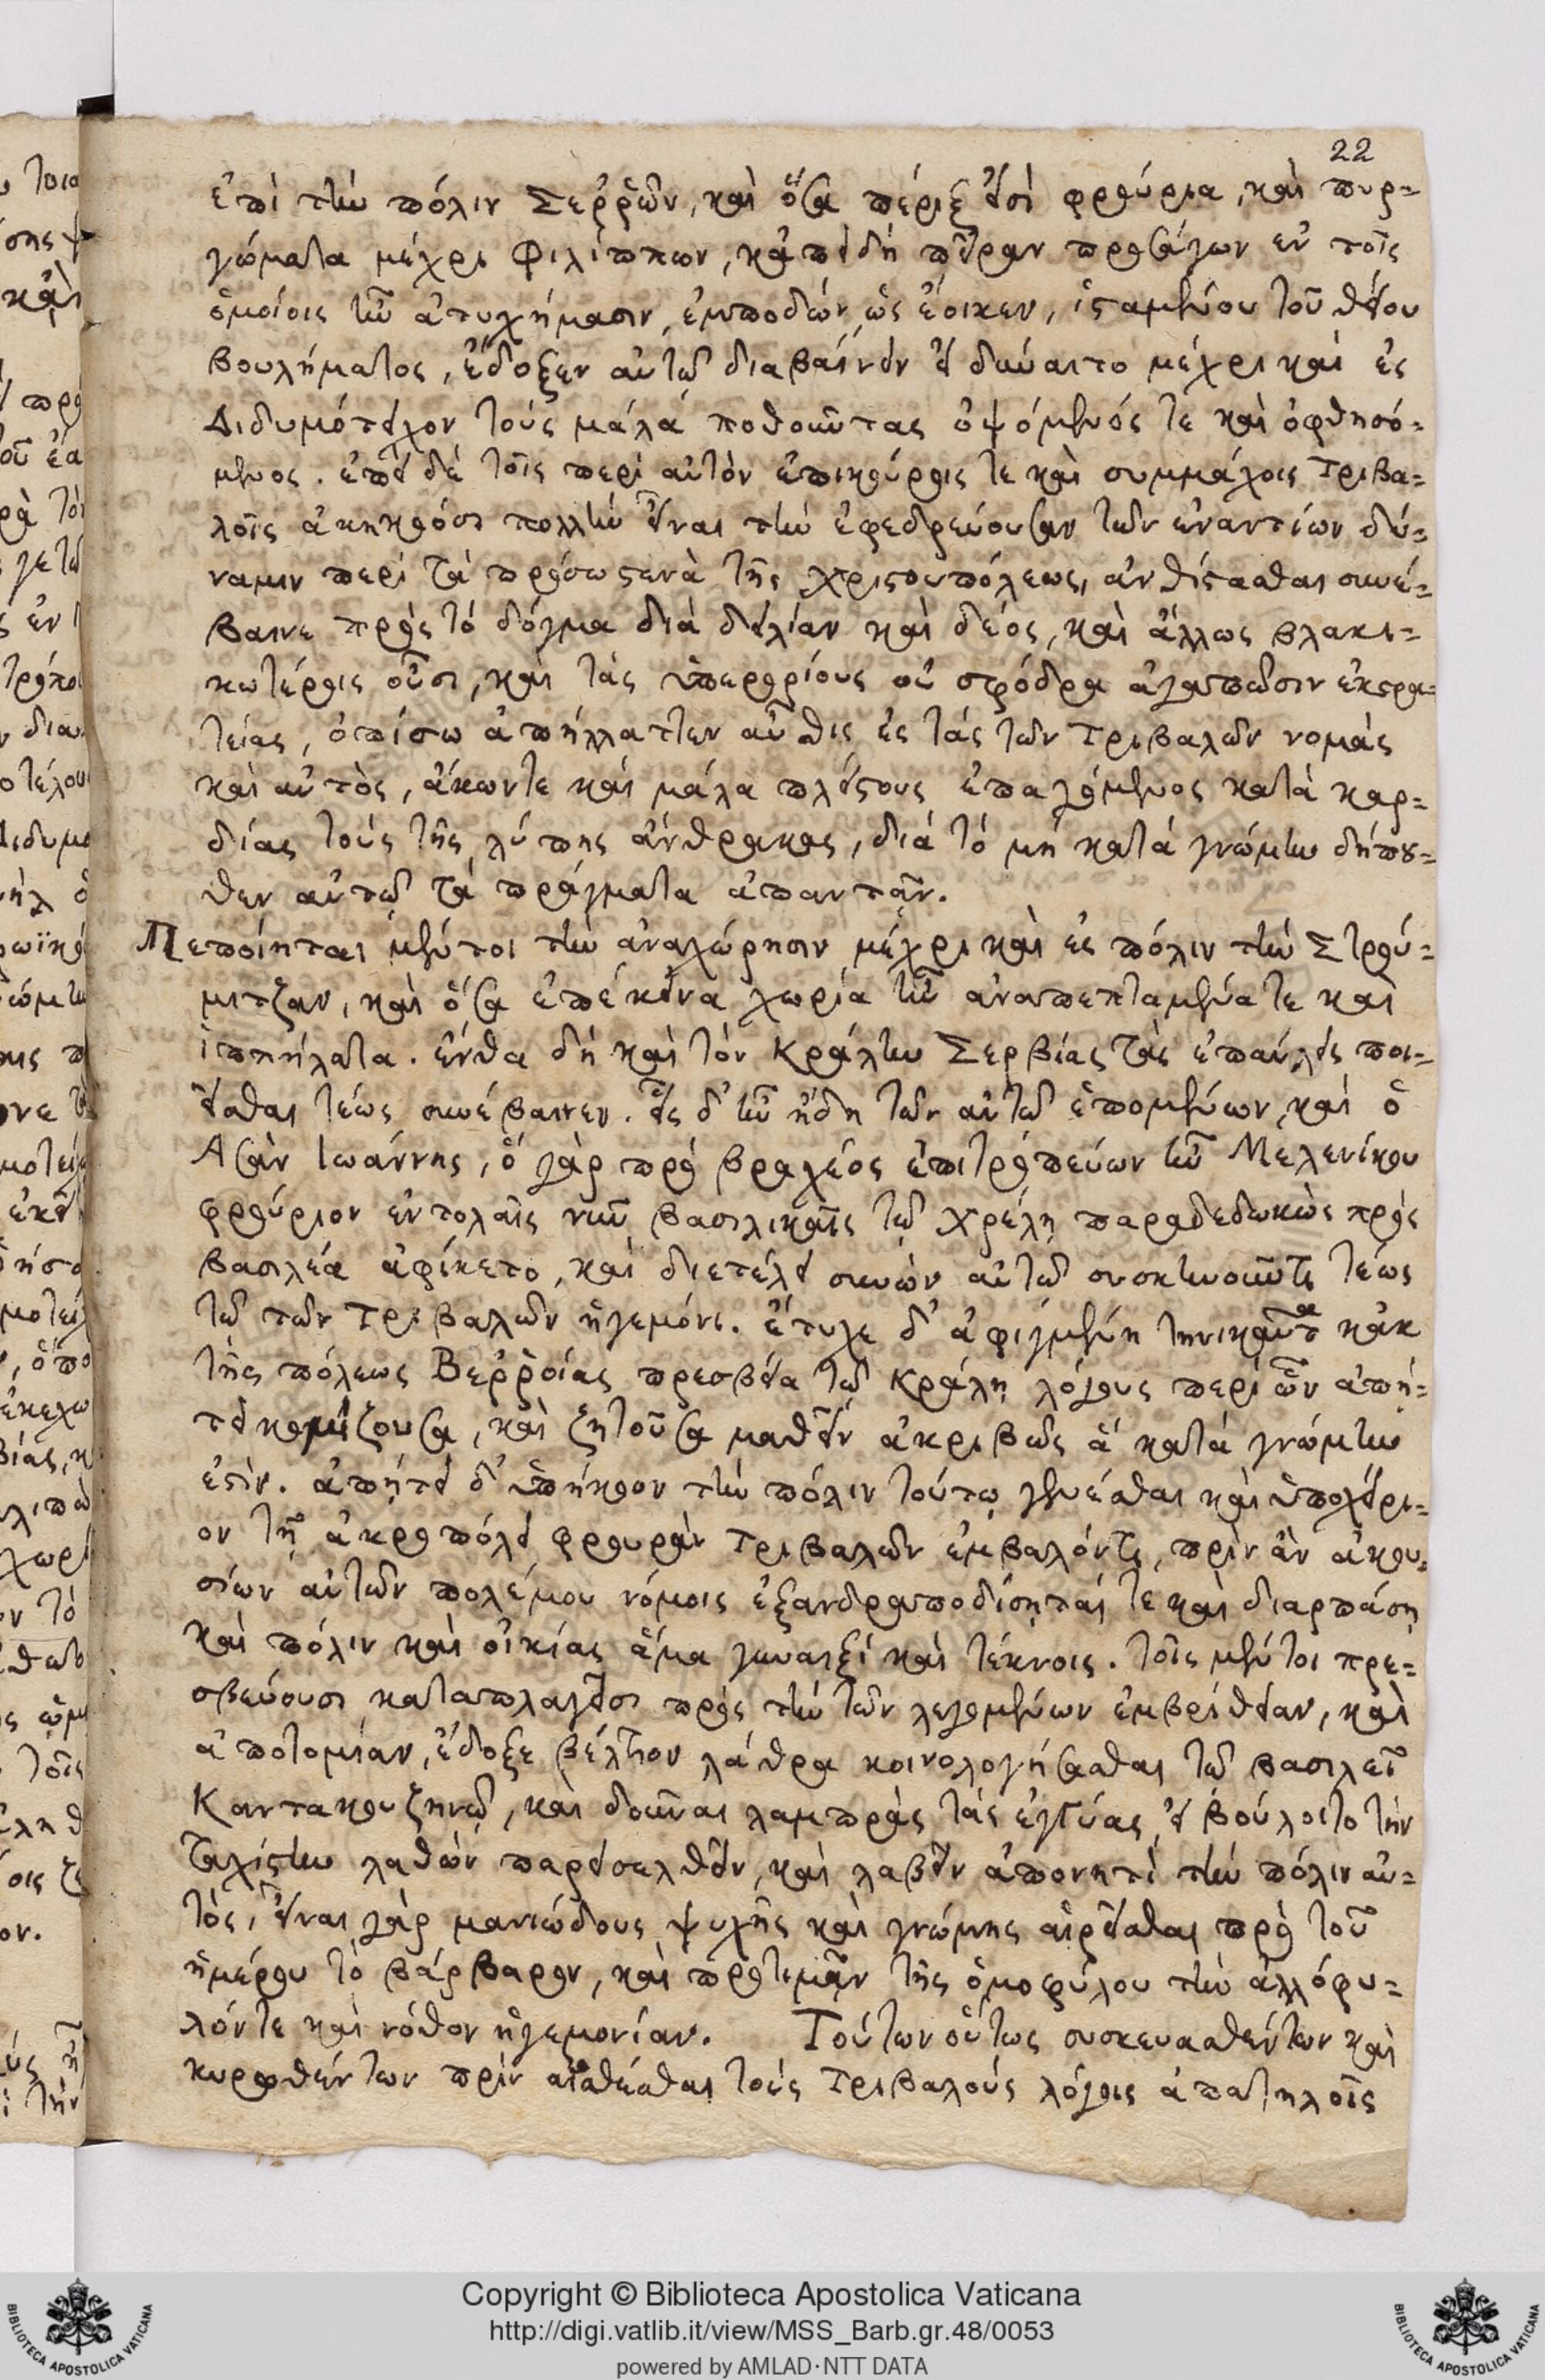 22
ἐπὶ τὴν πόλιν Σεῤῥῶν, καὶ ὅσα πέριξ εἰσὶ φρούρια, καὶ πυρ=
γώματα μέχρι Φιλίππων, κἀπειδὴ πεῖραν προσάγων ἐν τοῖς
ὁμοίοις ἦν ἀτυχήμασιν, ἐμποδὼν, ὡς ἔοικεν, ἱσταμένου τοῦ θείου
βουλήματος, ἔδοξεν αὐτῷ διαβαίνειν εἰ δύναιτο μέχρι καὶ ἐς
Διδυμότειχον τοὺς μάλα ποθοῦντας ὀψόμενός τε καὶ ὀφθησό=
μενος. ἐπεὶ δὲ τοῖς περὶ αὐτὸν ἐπικούροις τε καὶ συμμάχοις Τριβα=
λοῖς ἀκηκοόσι πολλὴν εἶναι τὴν ἐφεδρεύουσαν τῶν ἐναντίων δύ=
ναμιν περὶ τὰ πρόσω στενὰ τῆς Χριστουπόλεως, ἀνθίστασθαι συνέ=
βαινε πρὸς τὸ δόγμα διὰ δειλίαν καὶ δέος, καὶ ἄλλως βλακι=
κωτέροις οὖσι, καὶ τὰς ὑπερορίους οὐ σφόδρα ἀγαπῶσιν ἐκστρα=
τείας, ὀπίσω ἀπήλλαττεν αὖθις ἐς τὰς τῶν Τριβαλῶν νομὰς
καὶ αὐτὸς, ἄκων τε καὶ μάλα πλείστους ἐπαγόμενος κατὰ καρ=
δίας τοὺς τῆς λύπης ἄνθρακας, διὰ τὸ μὴ κατὰ γνώμην δήπου=
θεν αὐτῷ τὰ πράγματα ἀπαντᾶν.
Πεποίηται μέντοι τὴν ἀναχώρησιν μέχρι καὶ ἐς πόλιν τὴν Στρού=
μιτζαν, καὶ ὅσα ἐπέκεινα χωρία ἦν ἀναπεπταμένα τε καὶ
ἱππήλατα. ἔνθα δὴ καὶ τὸν Κράλην Σερβίας τὰς ἐπαύλεις ποι=
εῖσθαι τέως συνέβαινεν. εἷς δ' ἦν ἤδη τῶν αὐτῷ ἑπομένων, καὶ ὁ
Ἀσὰν Ἰωάννης, ὃ γὰρ πρὸ βραχέος ἐπιτροπεύων ἦν Μελενίκου
φρούριον ἐντολαῖς νῦν βασιλικαῖς τῷ Χρέλῃ παραδεδωκὼς πρὸς
βασιλέα ἀφίκετο, καὶ διετέλει συνὼν αὐτῷ συσκηνοῦντι τέως
τῷ τῶν Τριβαλῶν ἡγεμόνι. ἔτυχε δ' ἀφιγμένη τηνικαῦτα κἀκ
τῆς πόλεως Βεῤῥοίας πρεσβεία τῷ Κράλῃ λόγους περὶ ὧν ἀπῄ=
τει κομίζουσα, καὶ ζητοῦσα μαθεῖν ἀκριβῶς ἃ κατὰ γνώμην
ἐστίν. ἀπῄτει δ' ὑπήκοον τὴν πόλιν τούτῳ γενέσθαι καὶ ὑποχείρι=
ον τῇ ἀκροπόλει φρουρὰν Τριβαλῶν ἐμβαλόντι, πρὶν ἂν ἀκου=
σίων αὐτῶν πολέμου νόμοις ἐξανδραποδίσηταί τε καὶ διαρπάσῃ
καὶ πόλιν καὶ οἰκίας ἅμα γυναιξὶ καὶ τέκνοις. τοῖς μέντοι πρε=
σβεύουσι καταπλαγεῖσι πρὸς τὴν τῶν λεγομένων ἐμβρίθειαν, καὶ
ἀποτομίαν, ἔδοξε βέλτιον λάθρα κοινολογήσασθαι τῷ βασιλεῖ
Καντακουζηνῷ, καὶ δοῦναι λαμπρὰς τὰς ἐγγύας, εἰ βούλοιτο τὴν
ταχίστην λαθὼν παρεισελθεῖν, καὶ λαβεῖν ἀπονητὶ τὴν πόλιν αὐ=
τὸς, εἶναι γὰρ μανιώδους ψυχῆς καὶ γνώμης αἱρεῖσθαι πρὸ τοῦ
ἡμέρου τὸ βάρβαρον, καὶ προτιμᾶν τῆς ὁμοφύλου τὴν ἀλλόφυ=
λόν τε καὶ νόθον ἡγεμονίαν. Τούτων οὕτως συσκευασθέντων καὶ
κυρωθέντων πρὶν αἰσθέσθαι τοὺς Τριβαλοὺς λόγοις ἀπατηλοῖς
Copyright © Biblioteca Apostolica Vaticana
http://digi.vatlib.it/view/MSS_Barb.gr.48/0053
powered by AMLAD·NTT DATA
BIBLIOTECA APOSTOLICA VATICANA
BIBLIOTECA APOSTOLICA VATICANA